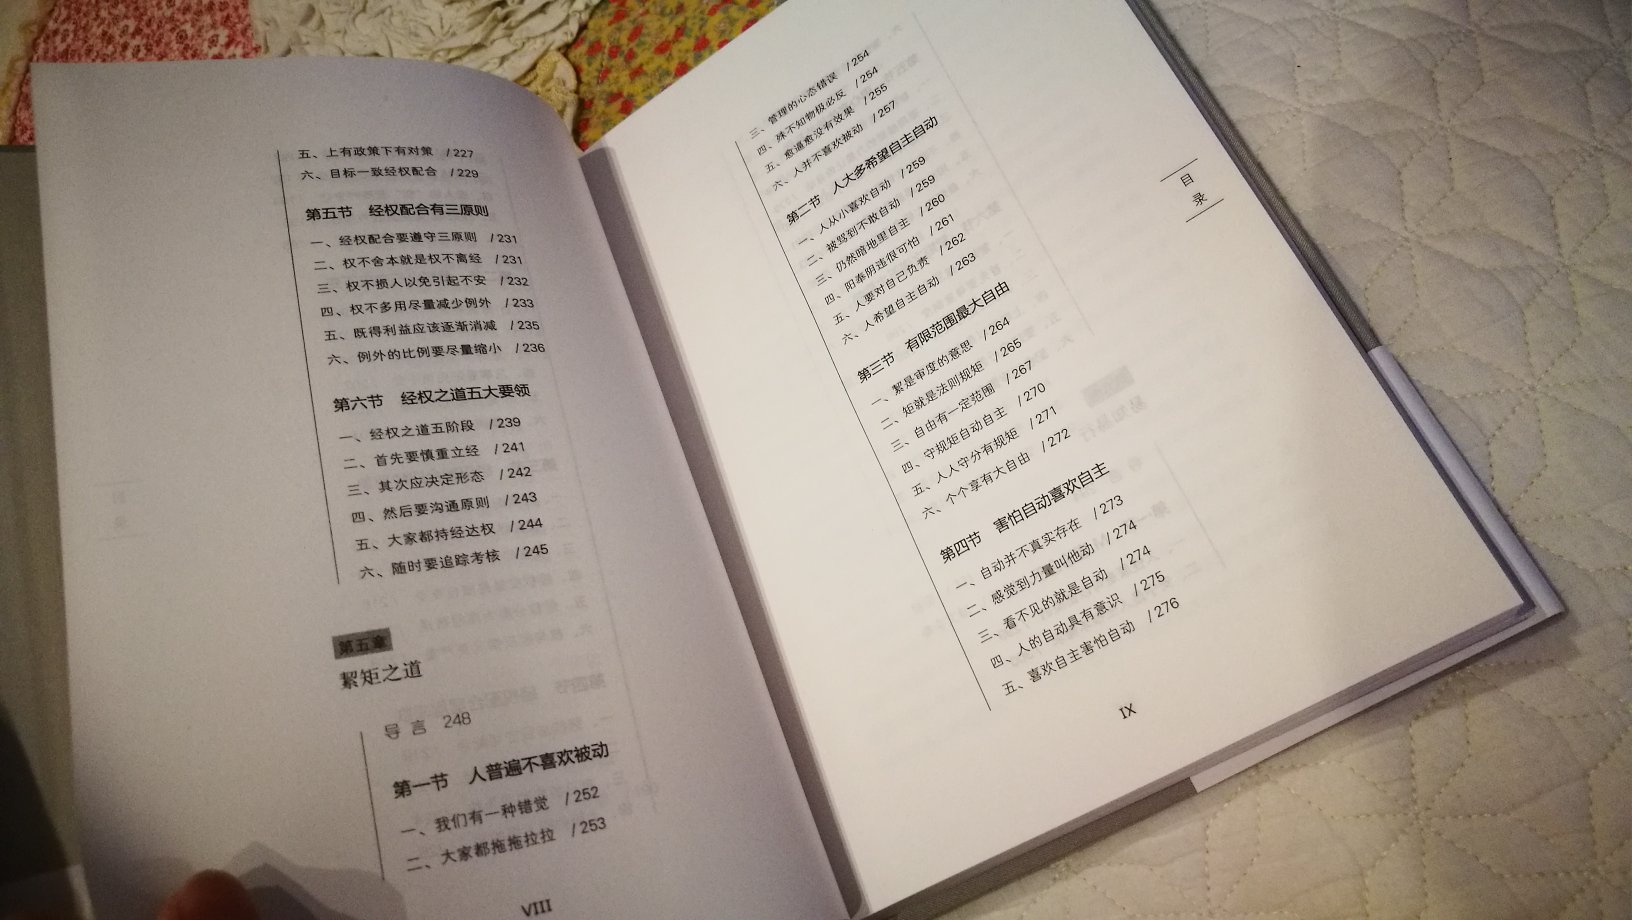 五、上有政策下有对策 / 227
六、目标一致经权配合 / 229
第五节 经权配合有三原则
一、经权配合要遵守三原则 / 231
二、权不舍本就是权不离经 / 231
三、权不损人以免引起不安 / 232
四、权不多用尽量减少例外 / 233
五、既得利益应该逐渐消减 / 235
六、例外的比例要尽量缩小 / 236
第六节 经权之道五大要领
一、经权之道五阶段 / 239
二、首先要慎重立经 / 241
三、其次应决定形态 / 242
四、然后要沟通原则 / 243
五、大家都持经达权 / 244
六、随时要追踪考核 / 245
第五章
絜矩之道
导言 248
第一节 人普遍不喜欢被动
一、我们有一种错觉 / 252
二、大家都拖拖拉拉 / 253
VIII
三、管理的心态错误 / 254
四、殊不知物极必反 / 254
五、愈逼愈没有效果 / 255
六、人并不喜欢被动 / 257
第二节 人大多希望自主自动
一、人从小喜欢自动 / 259
二、被骂到不敢自动 / 259
三、仍然暗地里自主 / 260
四、阳奉阴违很可怕 / 261
五、人要对自己负责 / 262
六、人希望自主自动 / 263
第三节 有限范围最大自由
一、絜是审度的意思 / 264
二、矩就是法则规矩 / 265
三、自由有一定范围 / 267
四、守规矩自动自主 / 270
五、人人守分有规矩 / 271
六、个个享有大自由 / 272
第四节 害怕自动喜欢自主
一、自动并不真实存在 / 273
二、感觉到力量叫他动 / 274
三、看不见的就是自动 / 274
四、人的自动具有意识 / 275
五、喜欢自主害怕自动 / 276
IX
目录